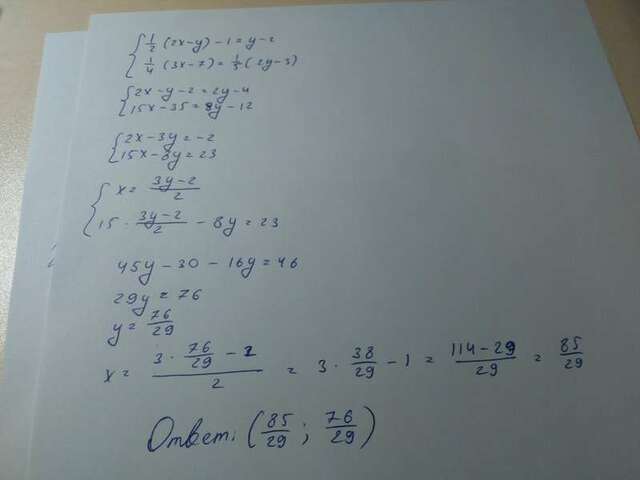 { 1/2 (2x-y) - 1 = y - 2
1/4 (3x-7) = 1/5 (2y-3)
{ 2x - y - 2 = 2y - 4
15x - 35 = 8y - 12
{ 2x - 3y = -2
15x - 8y = 23
{ x = (3y-2)/2
15 · (3y-2)/2 - 8y = 23
45y - 30 - 16y = 46
29y = 76
y = 76/29
x = (3 · 76/29 - 2)/2 = 3 · 38/29 - 1 = (114-29)/29 = 85/29
Ответ: (85/29 ; 76/29)